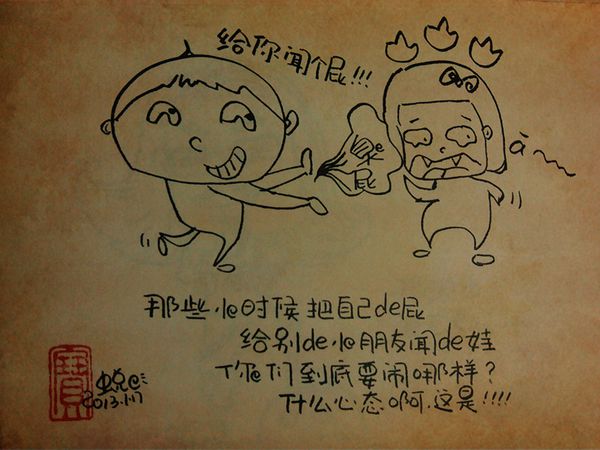 给你闻个屁!!!
臭屁
ā~
那些小e时候把自己de屁
给别de小e朋友闻de娃
你e们到底要闹哪样?
什么心态啊.这是!!!!
寶
2013.1.17